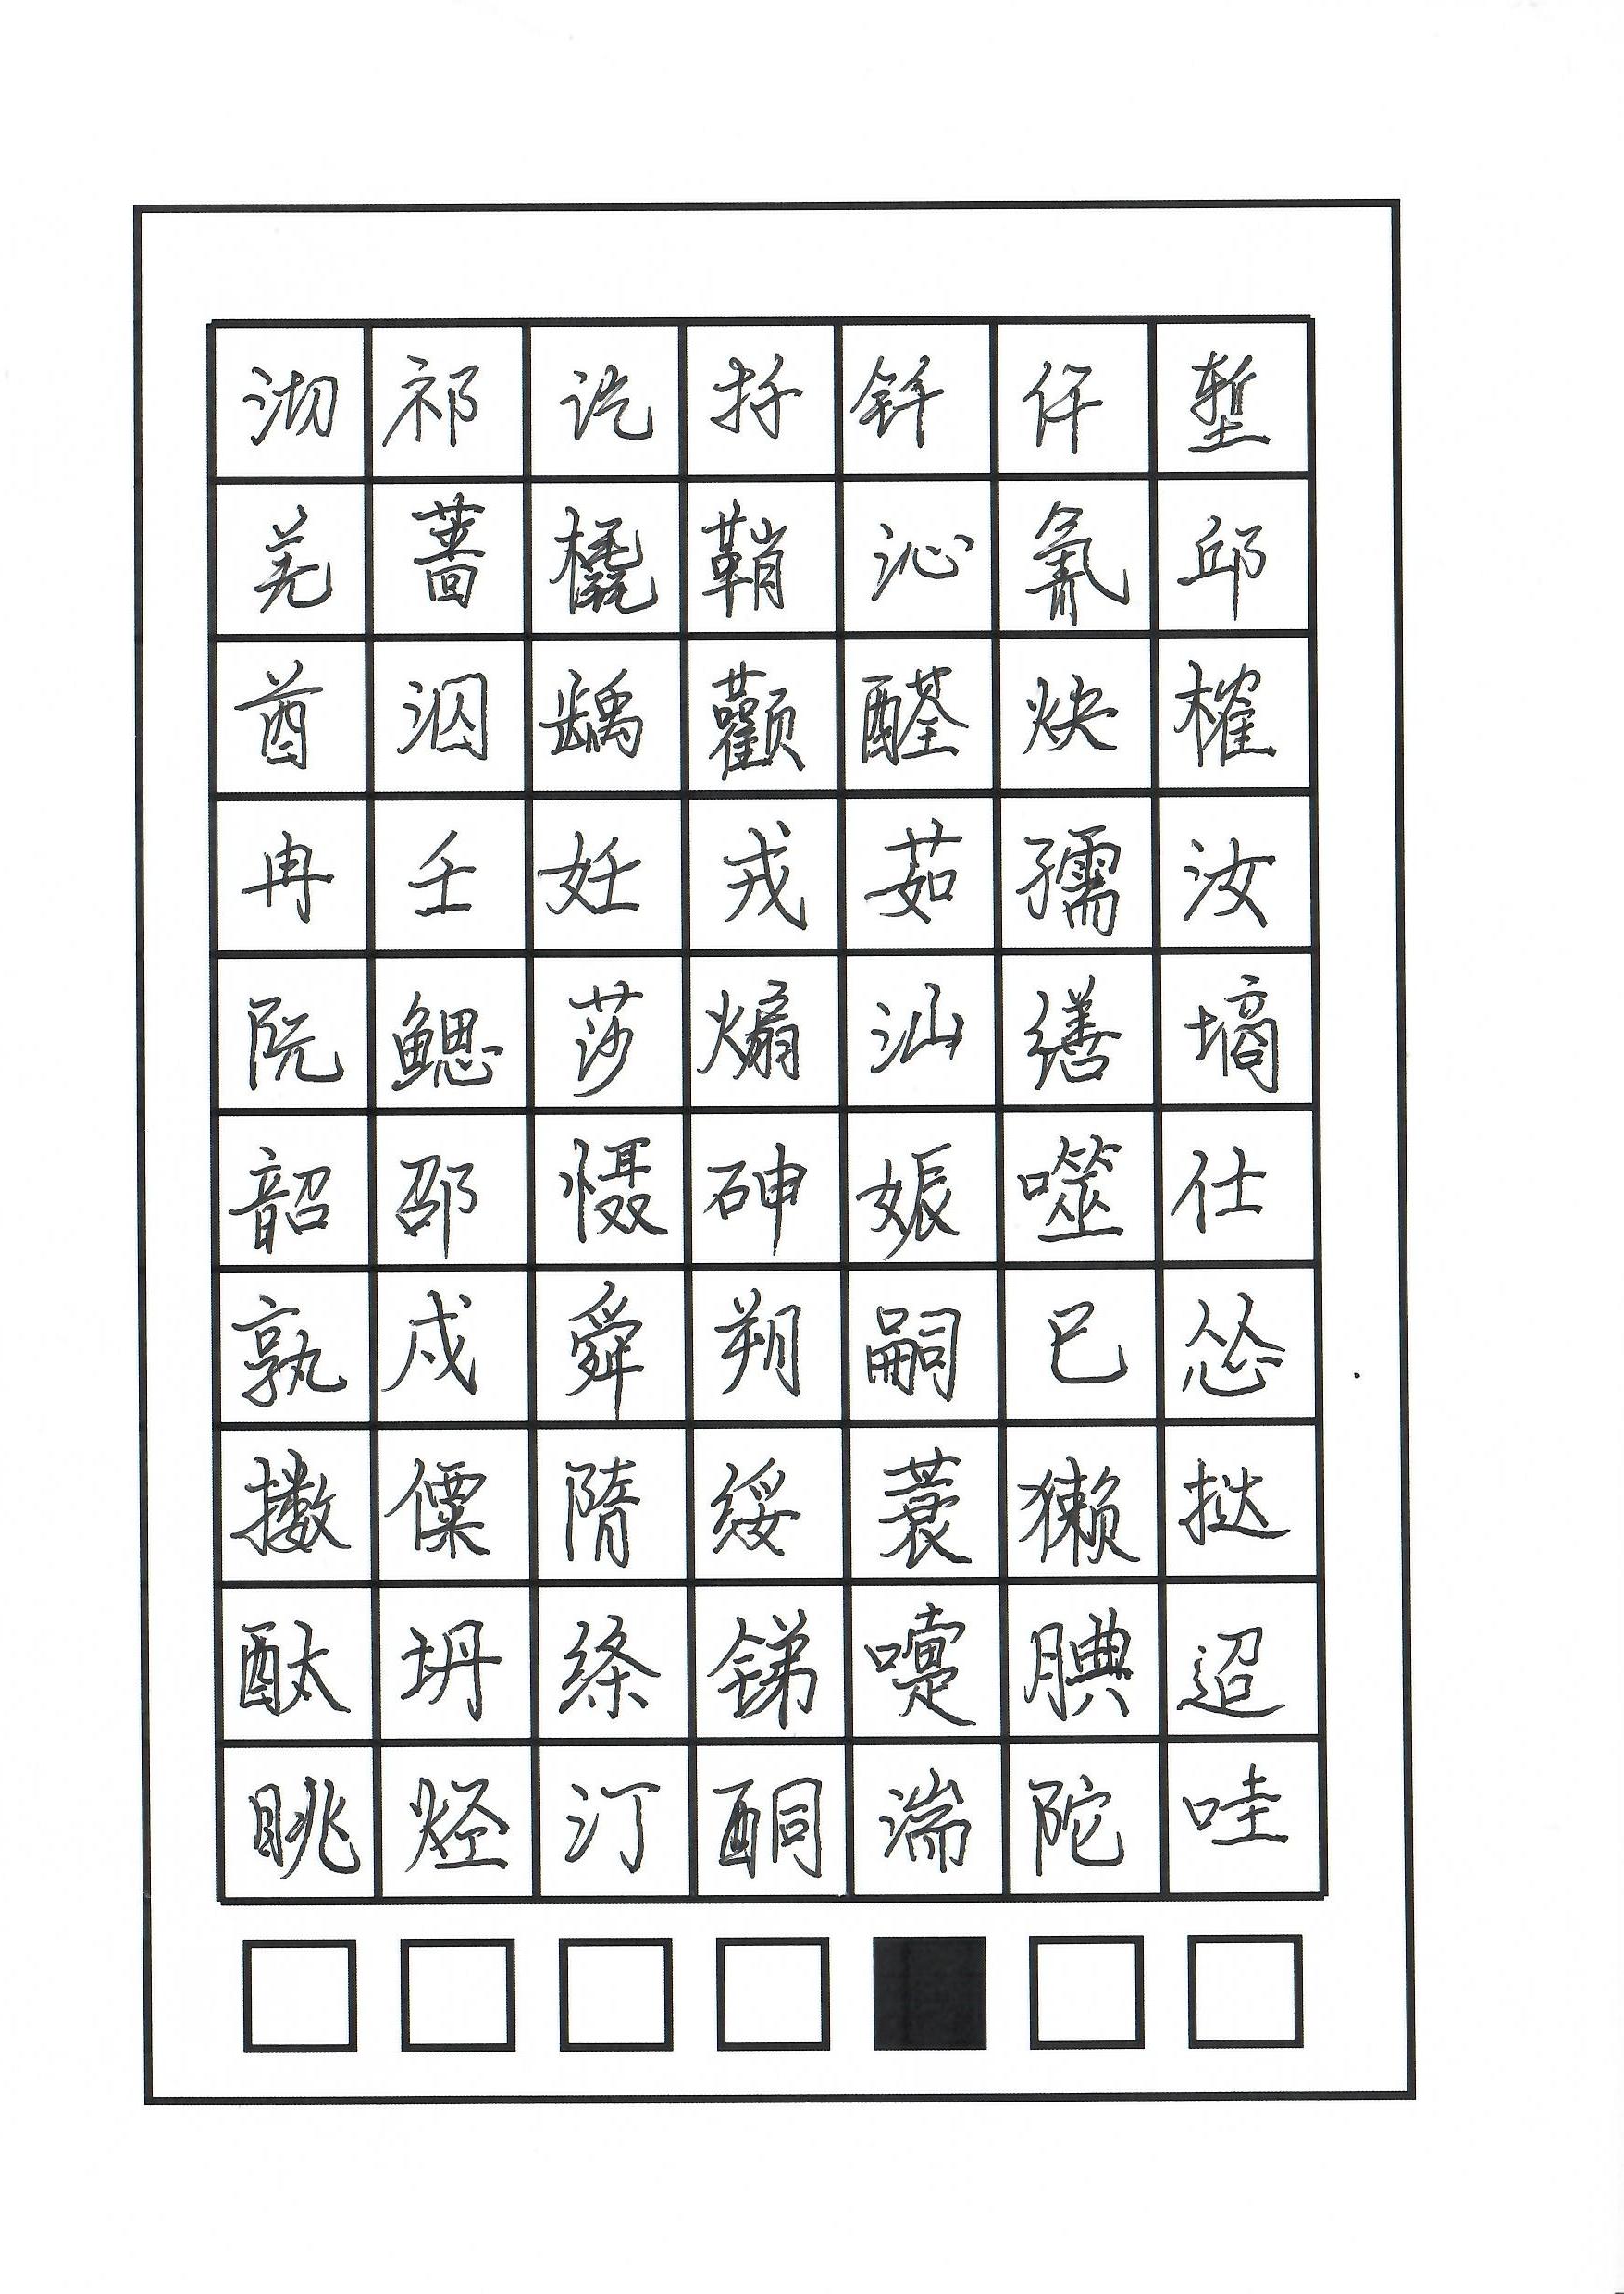 沏祁讫扦钎仟堑
羌蔷橇鞘沁氰邱
酋泅龋颧醛炔榷
冉壬妊戎茹孺汝
阮鳃莎煽汕缮墒
韶邵慑砷娠噬仕
孰戍舜朔嗣巳怂
擞僳隋绥蓑獭挞
酞坍绦锑嚏腆迢
眺烃汀酮湍陀哇